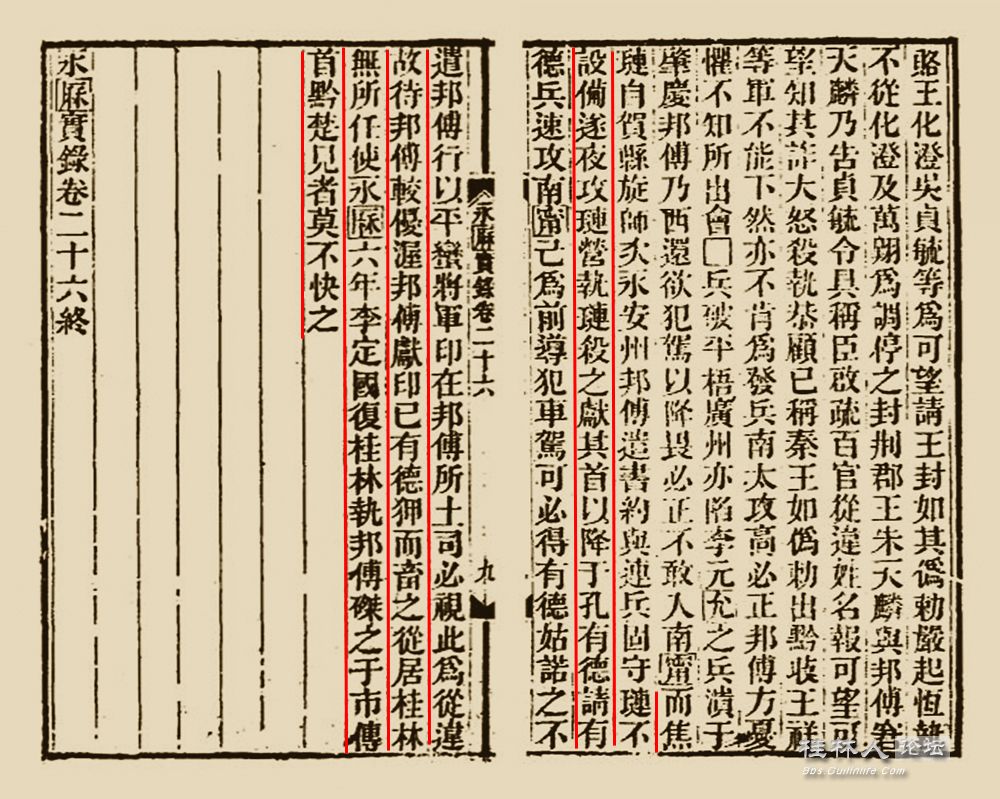 賂王化澄吳貞毓等爲可望請王封如其僞勅嚴起恆執
不從化澄及萬翔爲調停之封荆郡王朱天麟與邦傅有
天麟乃吿貞毓令具稱臣啟疏百官從違姓名報可望可
望知其詐大怒殺執恭顧已稱秦王如僞勅出黔收王祥
等軍不能下然亦不肯爲發兵南太攻高必正邦傅方憂
懼不知所出會□兵破平梧廣州亦陷李元允之兵潰于
肇慶邦傅乃西還欲犯駕以降畏必正不敢人南甯而焦
璉自賀縣旋師次永安州邦傅遣書約與連兵固守璉不
設備遂夜攻璉營執璉殺之獻其首以降于孔有德請有
德兵速攻南甯己爲前導犯車駕可必得有德姑諾之不
永厤實錄卷二十六
九
遣邦傅行以平蠻將軍印在邦傅所土司必視此爲從違
故待邦傅較優渥邦傅獻印已有德狎而畜之從居桂林
無所任使永厤六年李定國復桂林執邦傅磔之于市傳
首黔楚見者莫不快之
永厤實錄卷二十六終
桂林人论坛
bbs.Guilinlife.Com